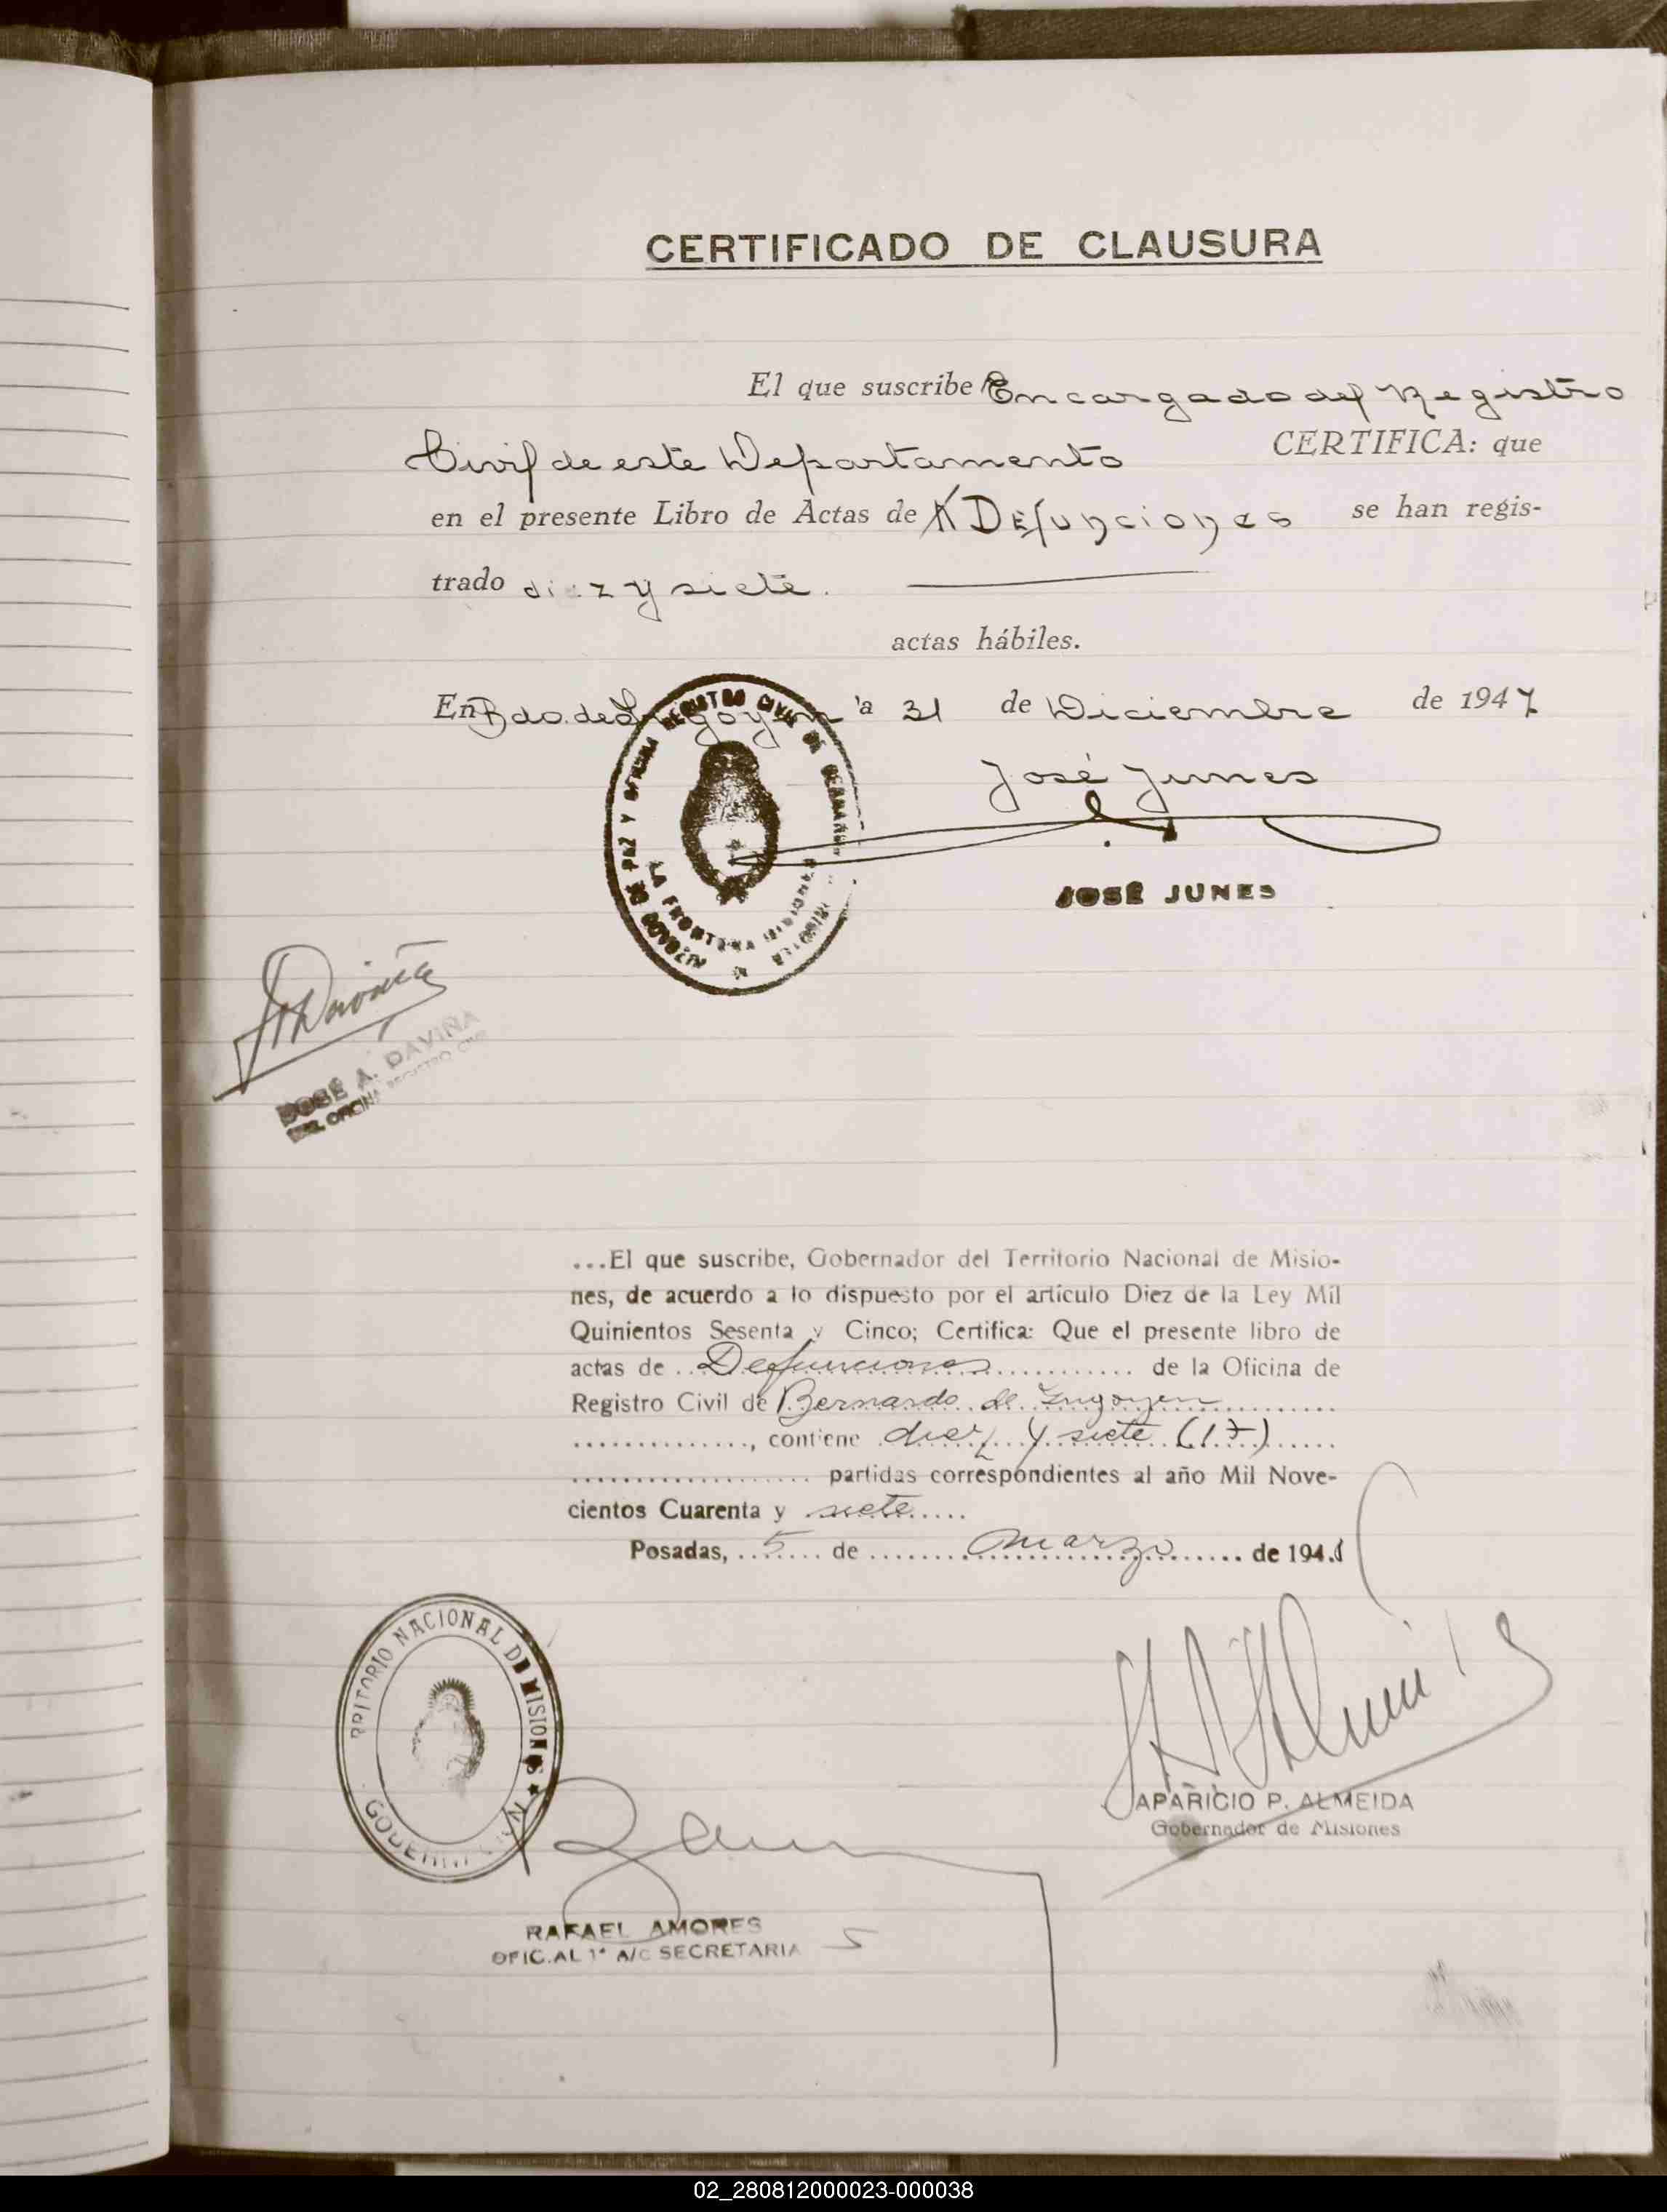 CERTIFICADO DE CLAUSURA
El que suscribe Encargado del Registro
Civil de este Departamento CERTIFICA: que
en el presente Libro de Actas de Defunciones se han regis-
trado diez y siete.
actas hábiles.
En Bdo. de Irigoyen a 31 de Diciembre de 1947
José Junes
JOSÉ JUNES
JUZGADO DE PAZ Y OFICINA REGISTRO CIVIL DE BERNARDO
LA FRONTERA MISIONES
JADaviña
JOSÉ A. DAVIÑA
OFICINA REGISTRO CIVIL
...El que suscribe, Gobernador del Territorio Nacional de Misio-
nes, de acuerdo a lo dispuesto por el artículo Diez de la Ley Mil
Quinientos Sesenta y Cinco; Certifica: Que el presente libro de
actas de ..Defunciones............ de la Oficina de
Registro Civil de Bernardo de Irigoyen............
..............., contiene diez y siete (17)......
.................... partidas correspondientes al año Mil Nove-
cientos Cuarenta y siete.....
Posadas, ..5.... de ........marzo........ de 1948
RRITORIO NACIONAL DE MISIONES ★
GOBERNACION
APARICIO P. ALMEIDA
Gobernador de Misiones
RAFAEL AMORES
OFICIAL 1° A/C SECRETARIA 5
02_280812000023-000038